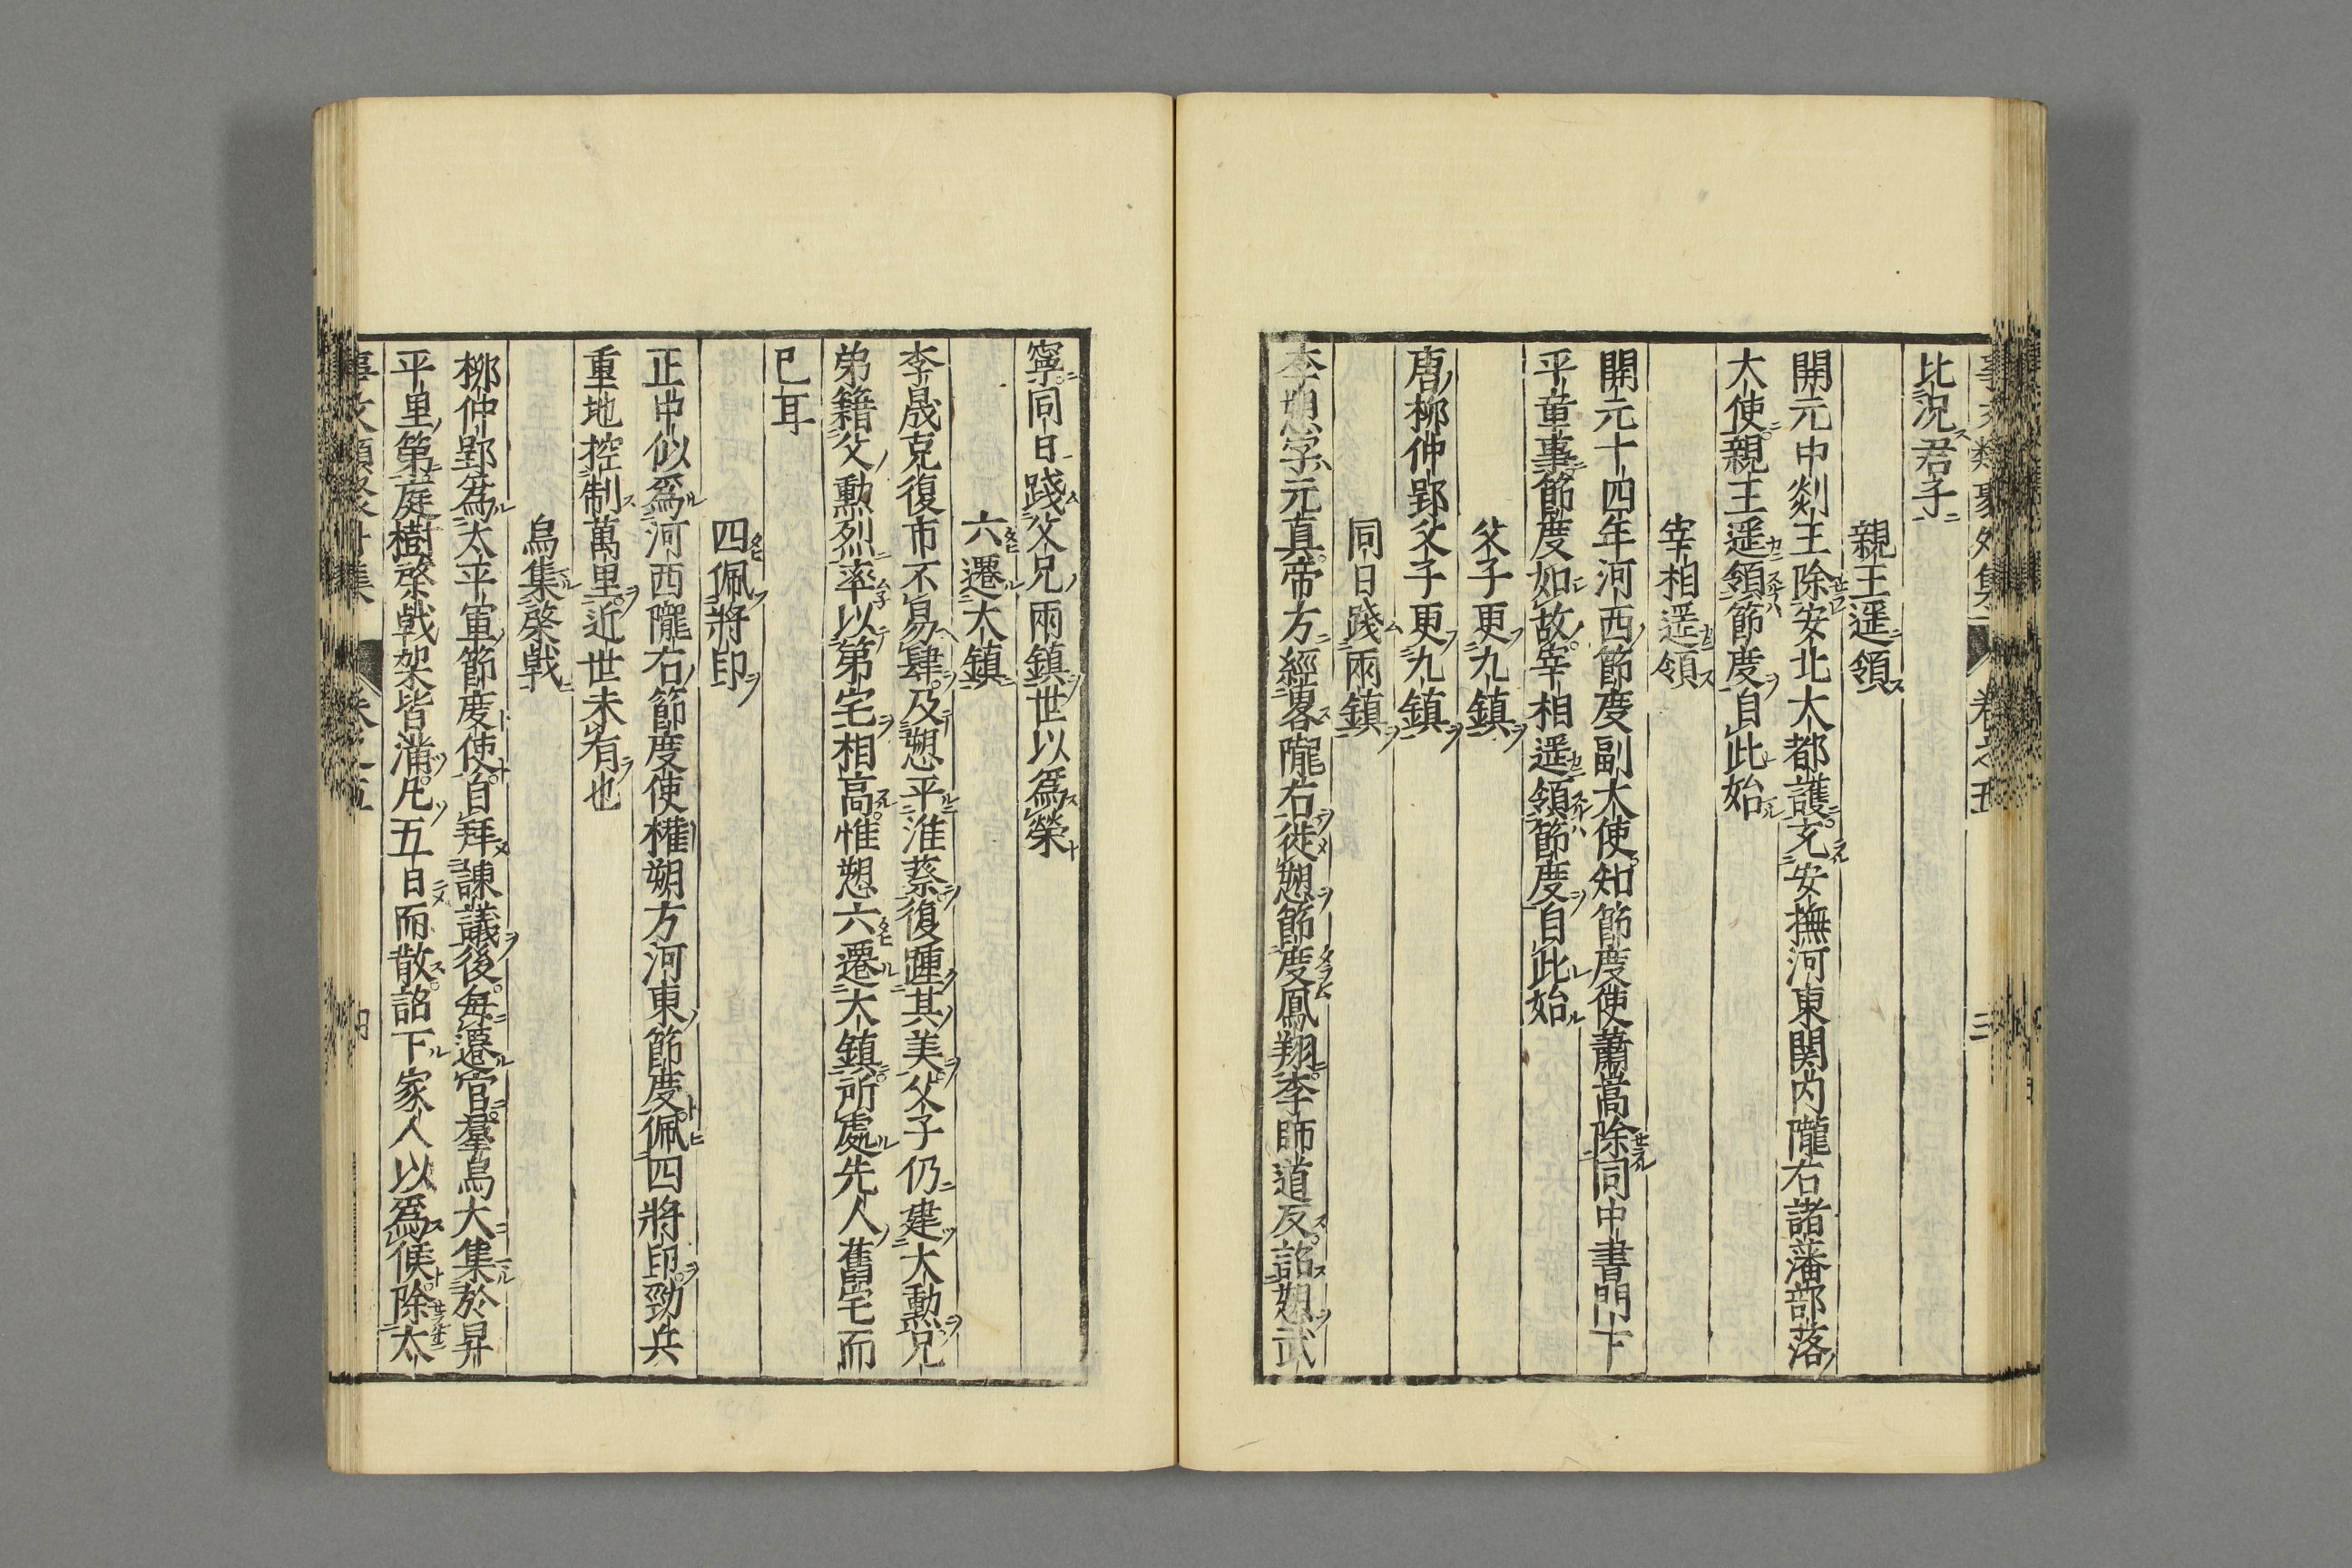 事文類聚外集 卷之五 三
比況君子
親王遥領
開元中剡王除安北大都護充安撫河東関内隴右諸藩部落
大使親王遥領節度自此始
宰相遥領
開元十四年河西節度副大使知節度使蕭嵩除同中書門下
平章事節度如故宰相遥領節度自此始
父子更九鎮
唐柳仲郢父子更九鎮
同日踐兩鎮
李愬字元真帝方經畧隴右徙愬節度鳳翔李師道反詔愬武
寧同日踐父兄兩鎮世以爲榮
六遷大鎮
李晟克復市不易肆及愬平淮蔡復踵其美父子仍建大勲兄
弟籍父勲烈率以第宅相高惟愬六遷大鎮所處先人舊宅而
已耳
四佩將印
正中似爲河西隴右節度使權朔方河東節度佩四將印勁兵
重地控制萬里近世未有也
烏集棨戟
柳仲郢為太平軍節度使自拜諫議後每遷官羣烏大集於昇
平里第庭樹棨戟架皆滿凡五日而散詔下家人以爲候除太
事文類聚外集 卷之五 四